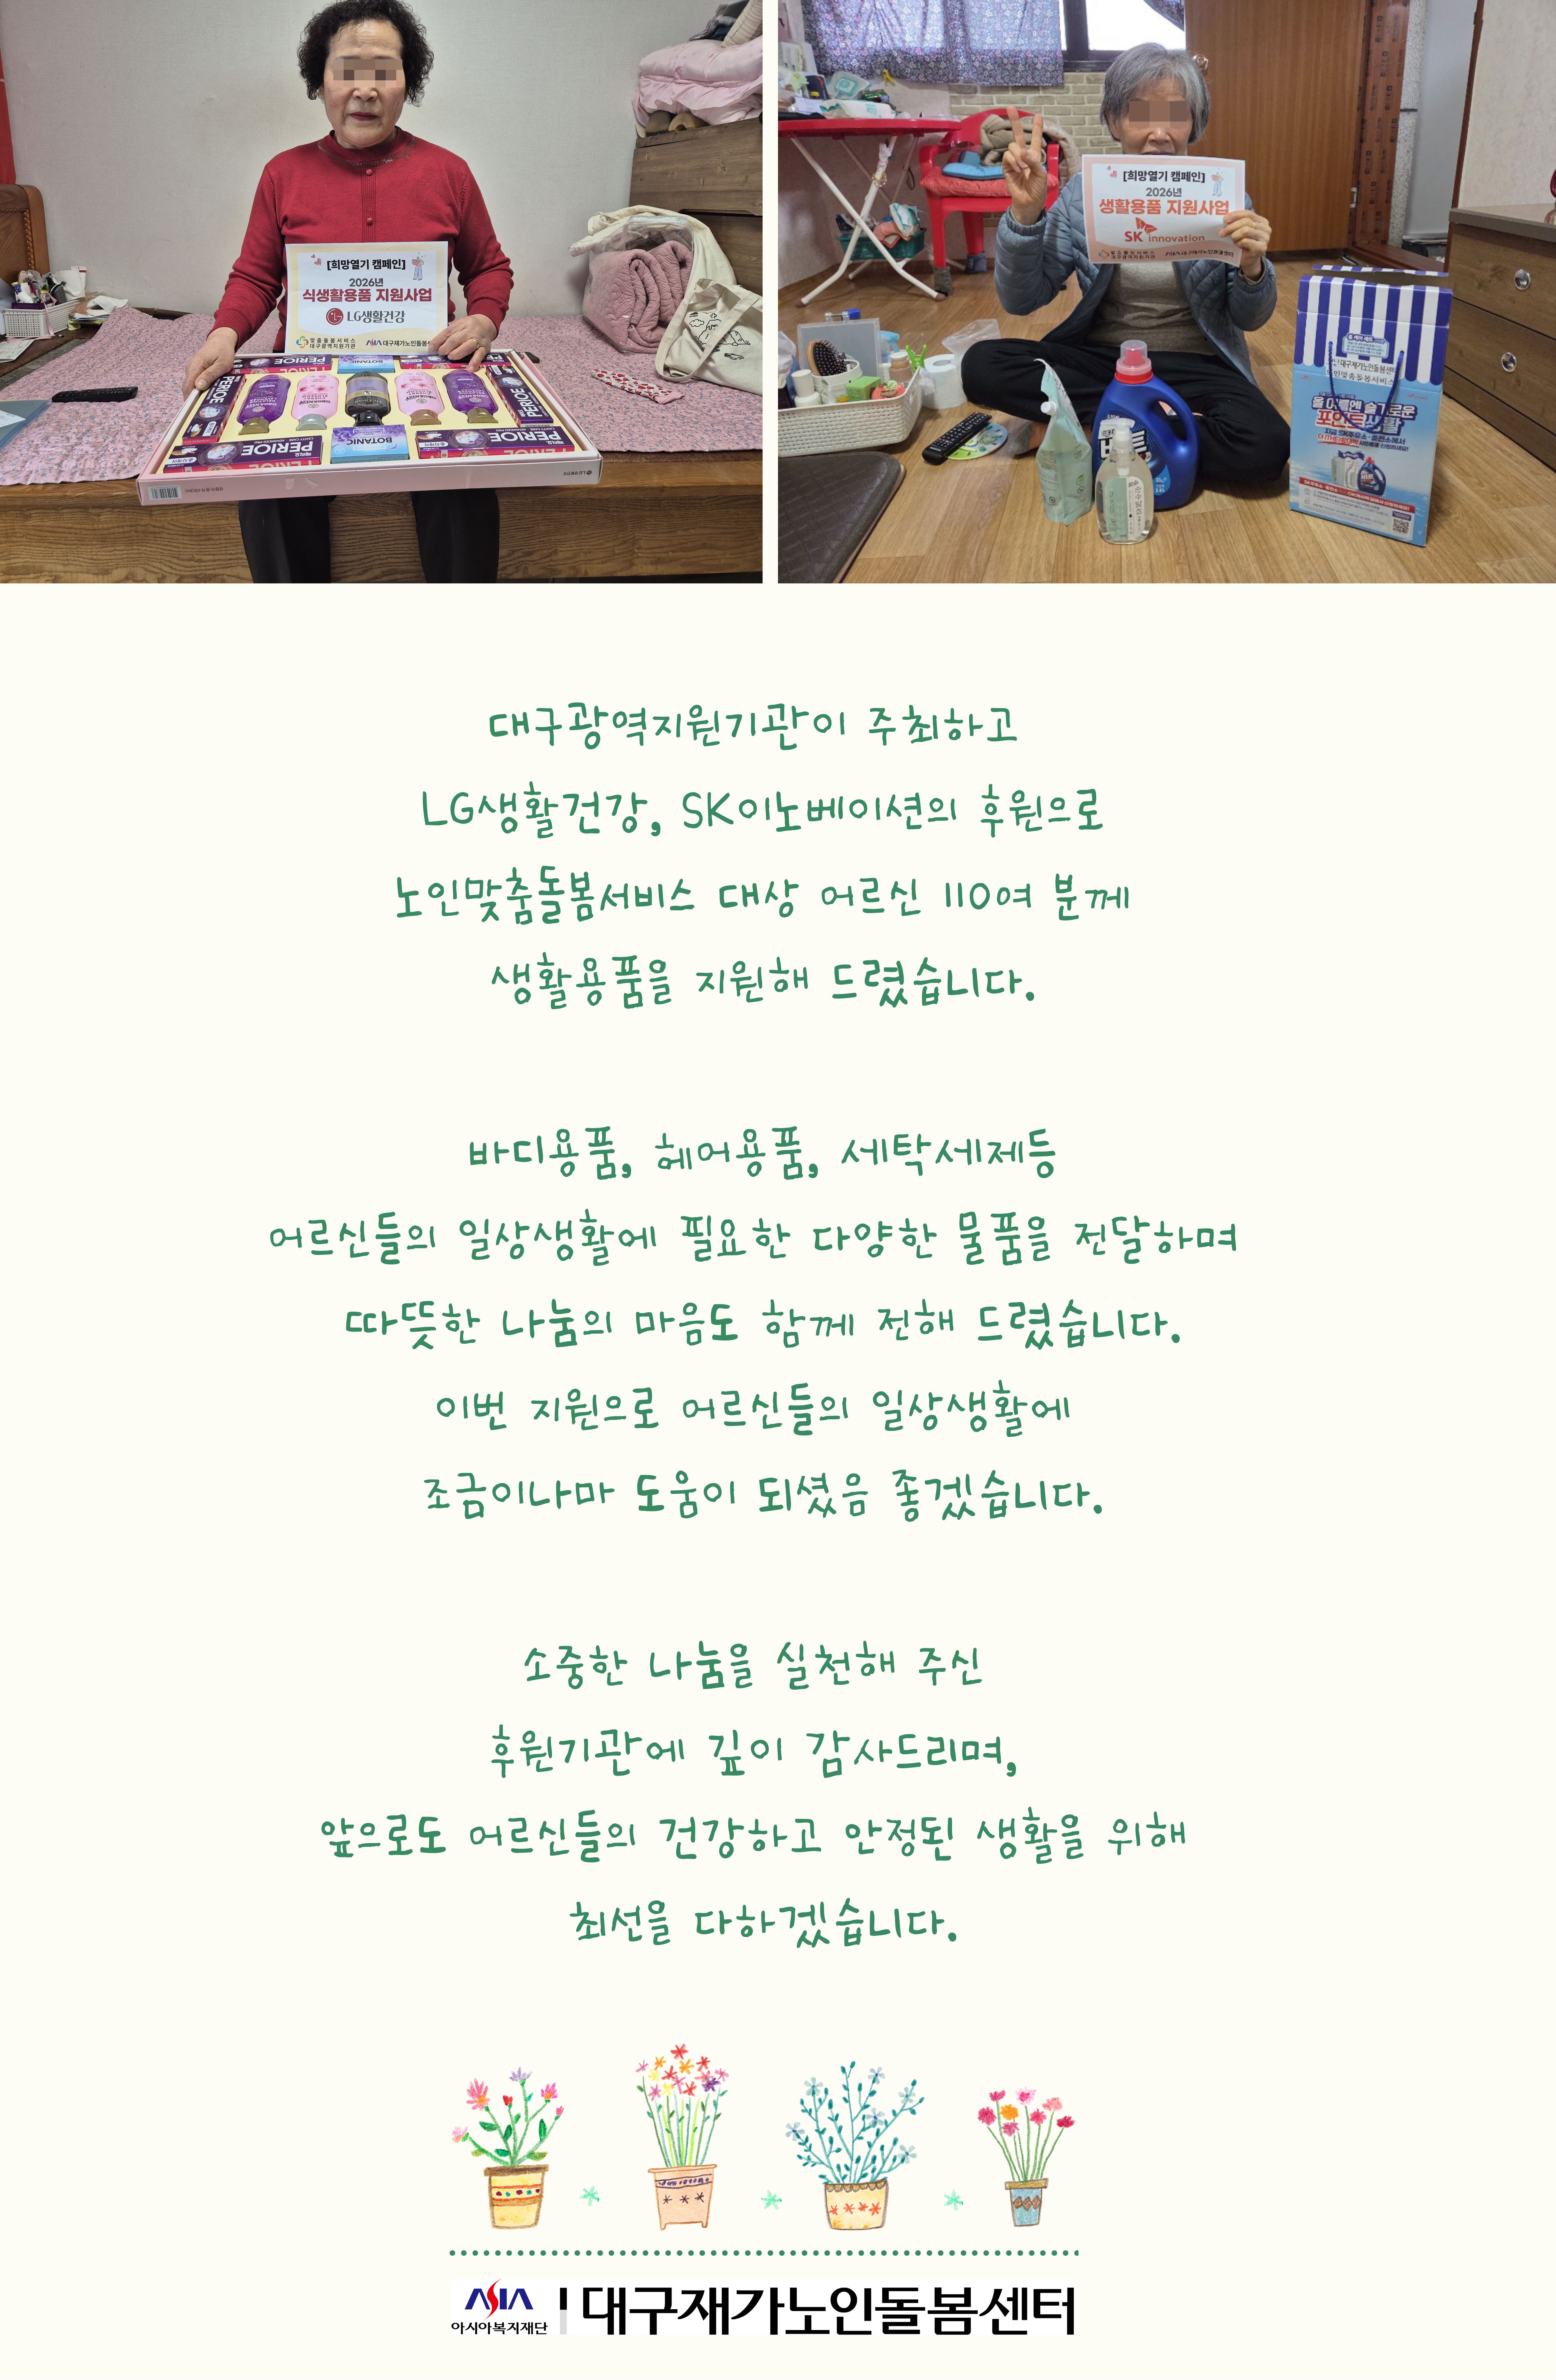 [희망열기 캠페인]
2026년
식생활용품 지원사업
LG생활건강
맞춤돌봄서비스
대구광역지원기관
ASIA 대구재가노인돌봄센
PERIOE
BOTANIC
PERIOE
PERIOE
PERIOE
BOTANIC
[희망열기 캠페인]
2026년
생활용품 지원사업
SK innovation
맞춤돌봄서비스
대구광역지원기관
포인트생활
대구광역지원기관이 주최하고
LG생활건강, SK이노베이션의 후원으로
노인맞춤돌봄서비스 대상 어르신 110여 분께
생활용품을 지원해 드렸습니다.
바디용품, 헤어용품, 세탁세제등
어르신들의 일상생활에 필요한 다양한 물품을 전달하며
따뜻한 나눔의 마음도 함께 전해 드렸습니다.
이번 지원으로 어르신들의 일상생활에
조금이나마 도움이 되셨음 좋겠습니다.
소중한 나눔을 실천해 주신
후원기관에 깊이 감사드리며,
앞으로도 어르신들의 건강하고 안정된 생활을 위해
최선을 다하겠습니다.
ASIA
아시아복지재단
대구재가노인돌봄센터